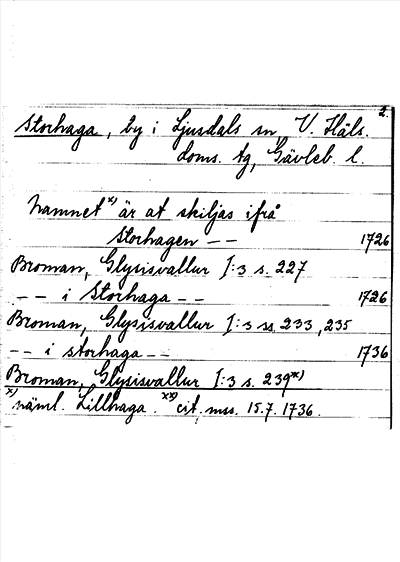 2.
Storhaga, by i Ljusdals sn, V. Häls.
doms. tg, Gävleb. l.
Namnet x) är at skiljas ifrå
Storhagen -- 1726
Broman, Glysisvallur I:3 s. 227
-- i Storhaga -- 1726
Broman, Glysisvallur I:3 ss. 233, 235
-- i storhaga -- 1736
Broman, Glysisvallur I:3 s. 239 xx)
x) näml. Lillhaga. xx) cit. mss. 15.7.1736.